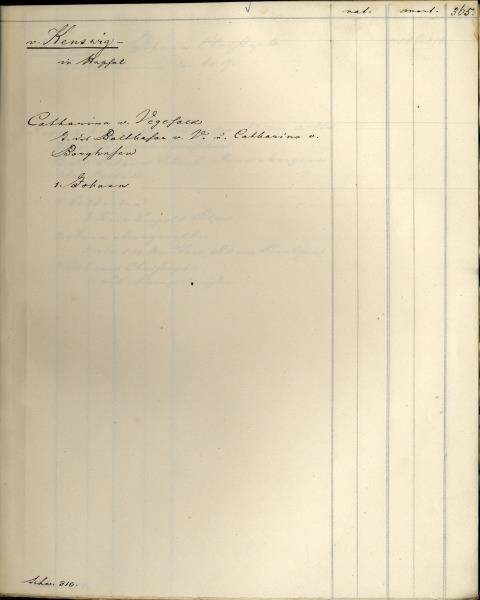 nat. mort. 365.
v. Kenswig –
in Hapsal
Catharina v. Vegesack
T. des Balthasar v. V. u. Catharina v.
Borghusen
1. Johann
310.